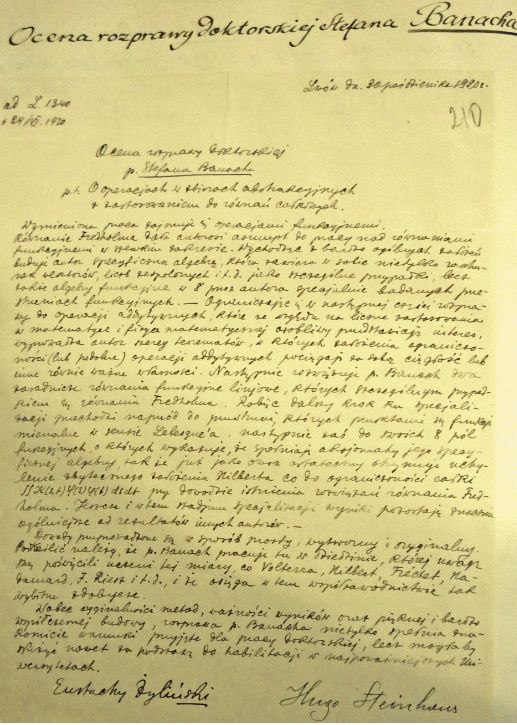 Ocena rozprawy doktorskiej Stefana Banacha
Lwów dn. 30 października 1920 r.
ad L. 1340
z 1920
210
Ocena rozprawy doktorskiej
p. Stefana Banacha
p.t. O operacjach w zbiorach abstrakcyjnych
z zastosowaniem do równań całkowych.
Wymieniona praca zajmuje się operacjami funkcyjnemi.
Równanie Fredholma dało autorowi asumpt do pracy nad równaniami
funkcyjnemi w szerokim zakresie. Wychodząc z bardzo ogólnych założeń
buduje autor specyficzną algebrę, która zawiera w sobie nietylko rachu-
nek wektorów, liczb zespolonych i t.d. jako szczególne przypadki, lecz
także algebry funkcyjne w 8 przez autora specjalnie badanych prze-
strzeniach funkcyjnych. — Ograniczając się w następnej części rozpra-
wy do operacji addytywnych, które ze względu na liczne zastosowania
w matematyce i fizyce matematycznej osobliwy przedstawiają interes,
wyprowadza autor szereg teorematów, w których założenia ograniczo-
ności (lub podobne) operacji addytywnych pociągają za sobą ciągłość lub
inne równie ważne własności. Następnie rozważa p. Banach dwa
zasadnicze równania funkcyjne linjowe, których szczególnym przypad-
kiem są równania Fredholma. Robiąc dalszy krok ku specjali-
zacji przechodzi naprzód do przestrzeni, których punktami są funkcje
mierzalne w sensie Lebesgue'a, następnie zaś do swoich 8 pól
funkcyjnych, o których wykazuje, że spełniają aksjomaty jego specy-
ficznej algebry, tak że już jako owoc ostateczny otrzymuje uchy-
lenie zbytecznego założenia Hilberta co do ograniczoności całki
∬K(s,t)φ(s)ψ(t)dsdt przy dowodzie istnienia rozwiązań równania Fred-
holma. Jeszcze i w tem stadjum specjalizacji wyniki pozostają znacznie
ogólniejsze od rezultatów innych autorów. —
Dowody przeprowadzone są w sposób prosty, wytworny i oryginalny.
Podkreślić należy, że p. Banach pracuje tu w dziedzinie, której uwagę
swą poświęcili uczeni tej miary, co Volterra, Hilbert, Fréchet, Ha-
damard, F. Riesz i t.d., i że osiąga w tem współzawodnictwie tak
wybitne zdobycze.
Wobec oryginalności metod, ważności wyników oraz pięknej i bardzo
współczesnej budowy, rozprawa p. Banacha nietylko spełnia zna-
komicie warunki przyjęte dla pracy doktorskiej, lecz mogłaby
służyć nawet za podstawę do habilitacji w najpoważniejszych Uni-
wersytetach.
Eustachy Żyliński Hugo Steinhaus